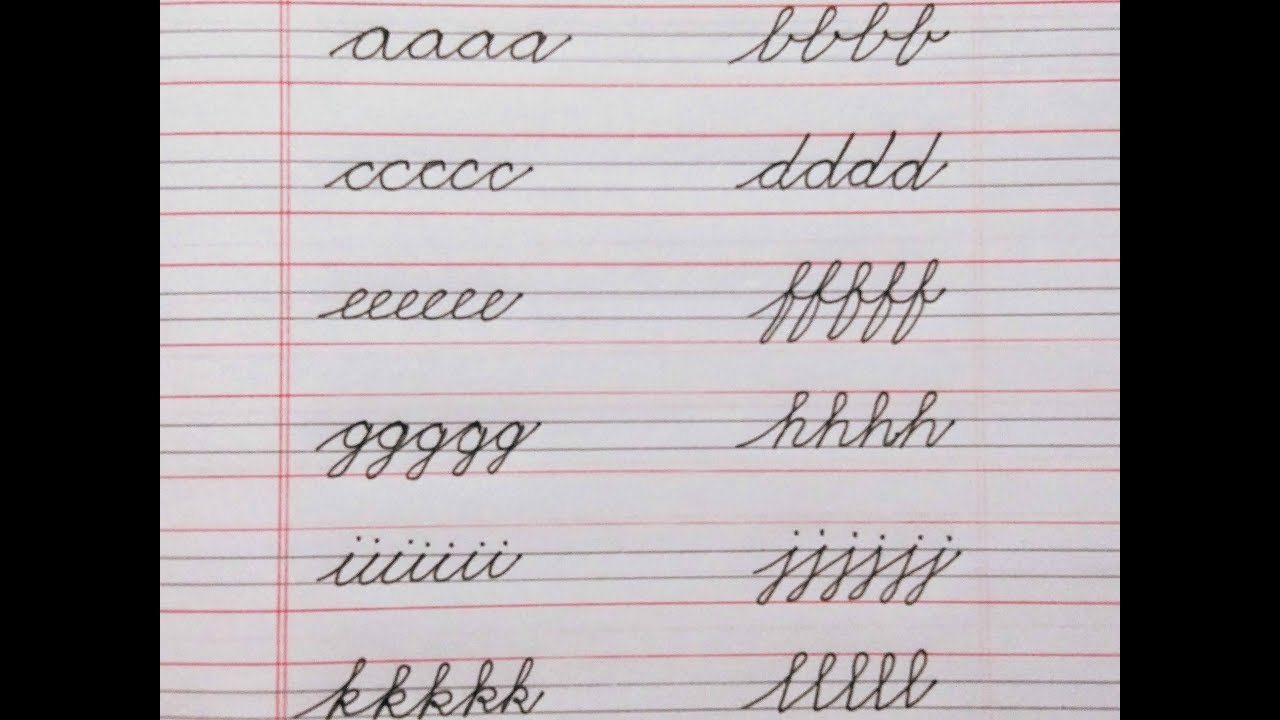 aaaa bbbb
ccccc dddd
eeeeee fffff
ggggg hhhh
iiiiiii jjjjjj
kkkkk lllll